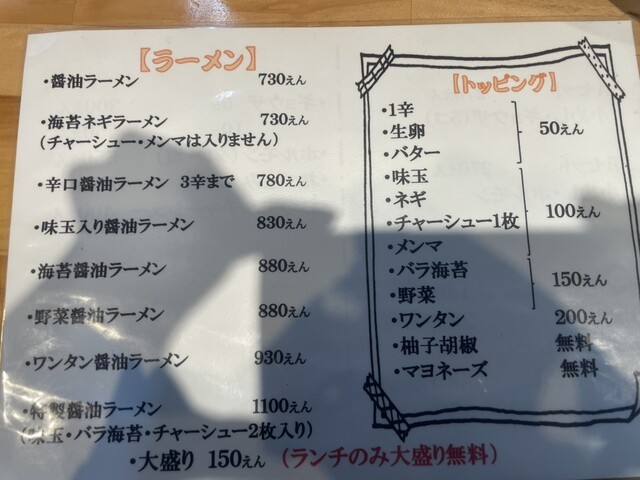 【ラーメン】
・醤油ラーメン 730えん
・海苔ネギラーメン 730えん
(チャーシュー・メンマは入りません)
・辛口醤油ラーメン 3辛まで 780えん
・味玉入り醤油ラーメン 830えん
・海苔醤油ラーメン 880えん
・野菜醤油ラーメン 880えん
・ワンタン醤油ラーメン 930えん
・特製醤油ラーメン 1100えん
(味玉・バラ海苔・チャーシュー2枚入り)
・大盛り 150えん (ランチのみ大盛り無料)
【トッピング】
・1辛
・生卵 50えん
・バター
・味玉
・ネギ
・チャーシュー1枚 100えん
・メンマ
・バラ海苔
・野菜 150えん
・ワンタン 200えん
・柚子胡椒 無料
・マヨネーズ 無料